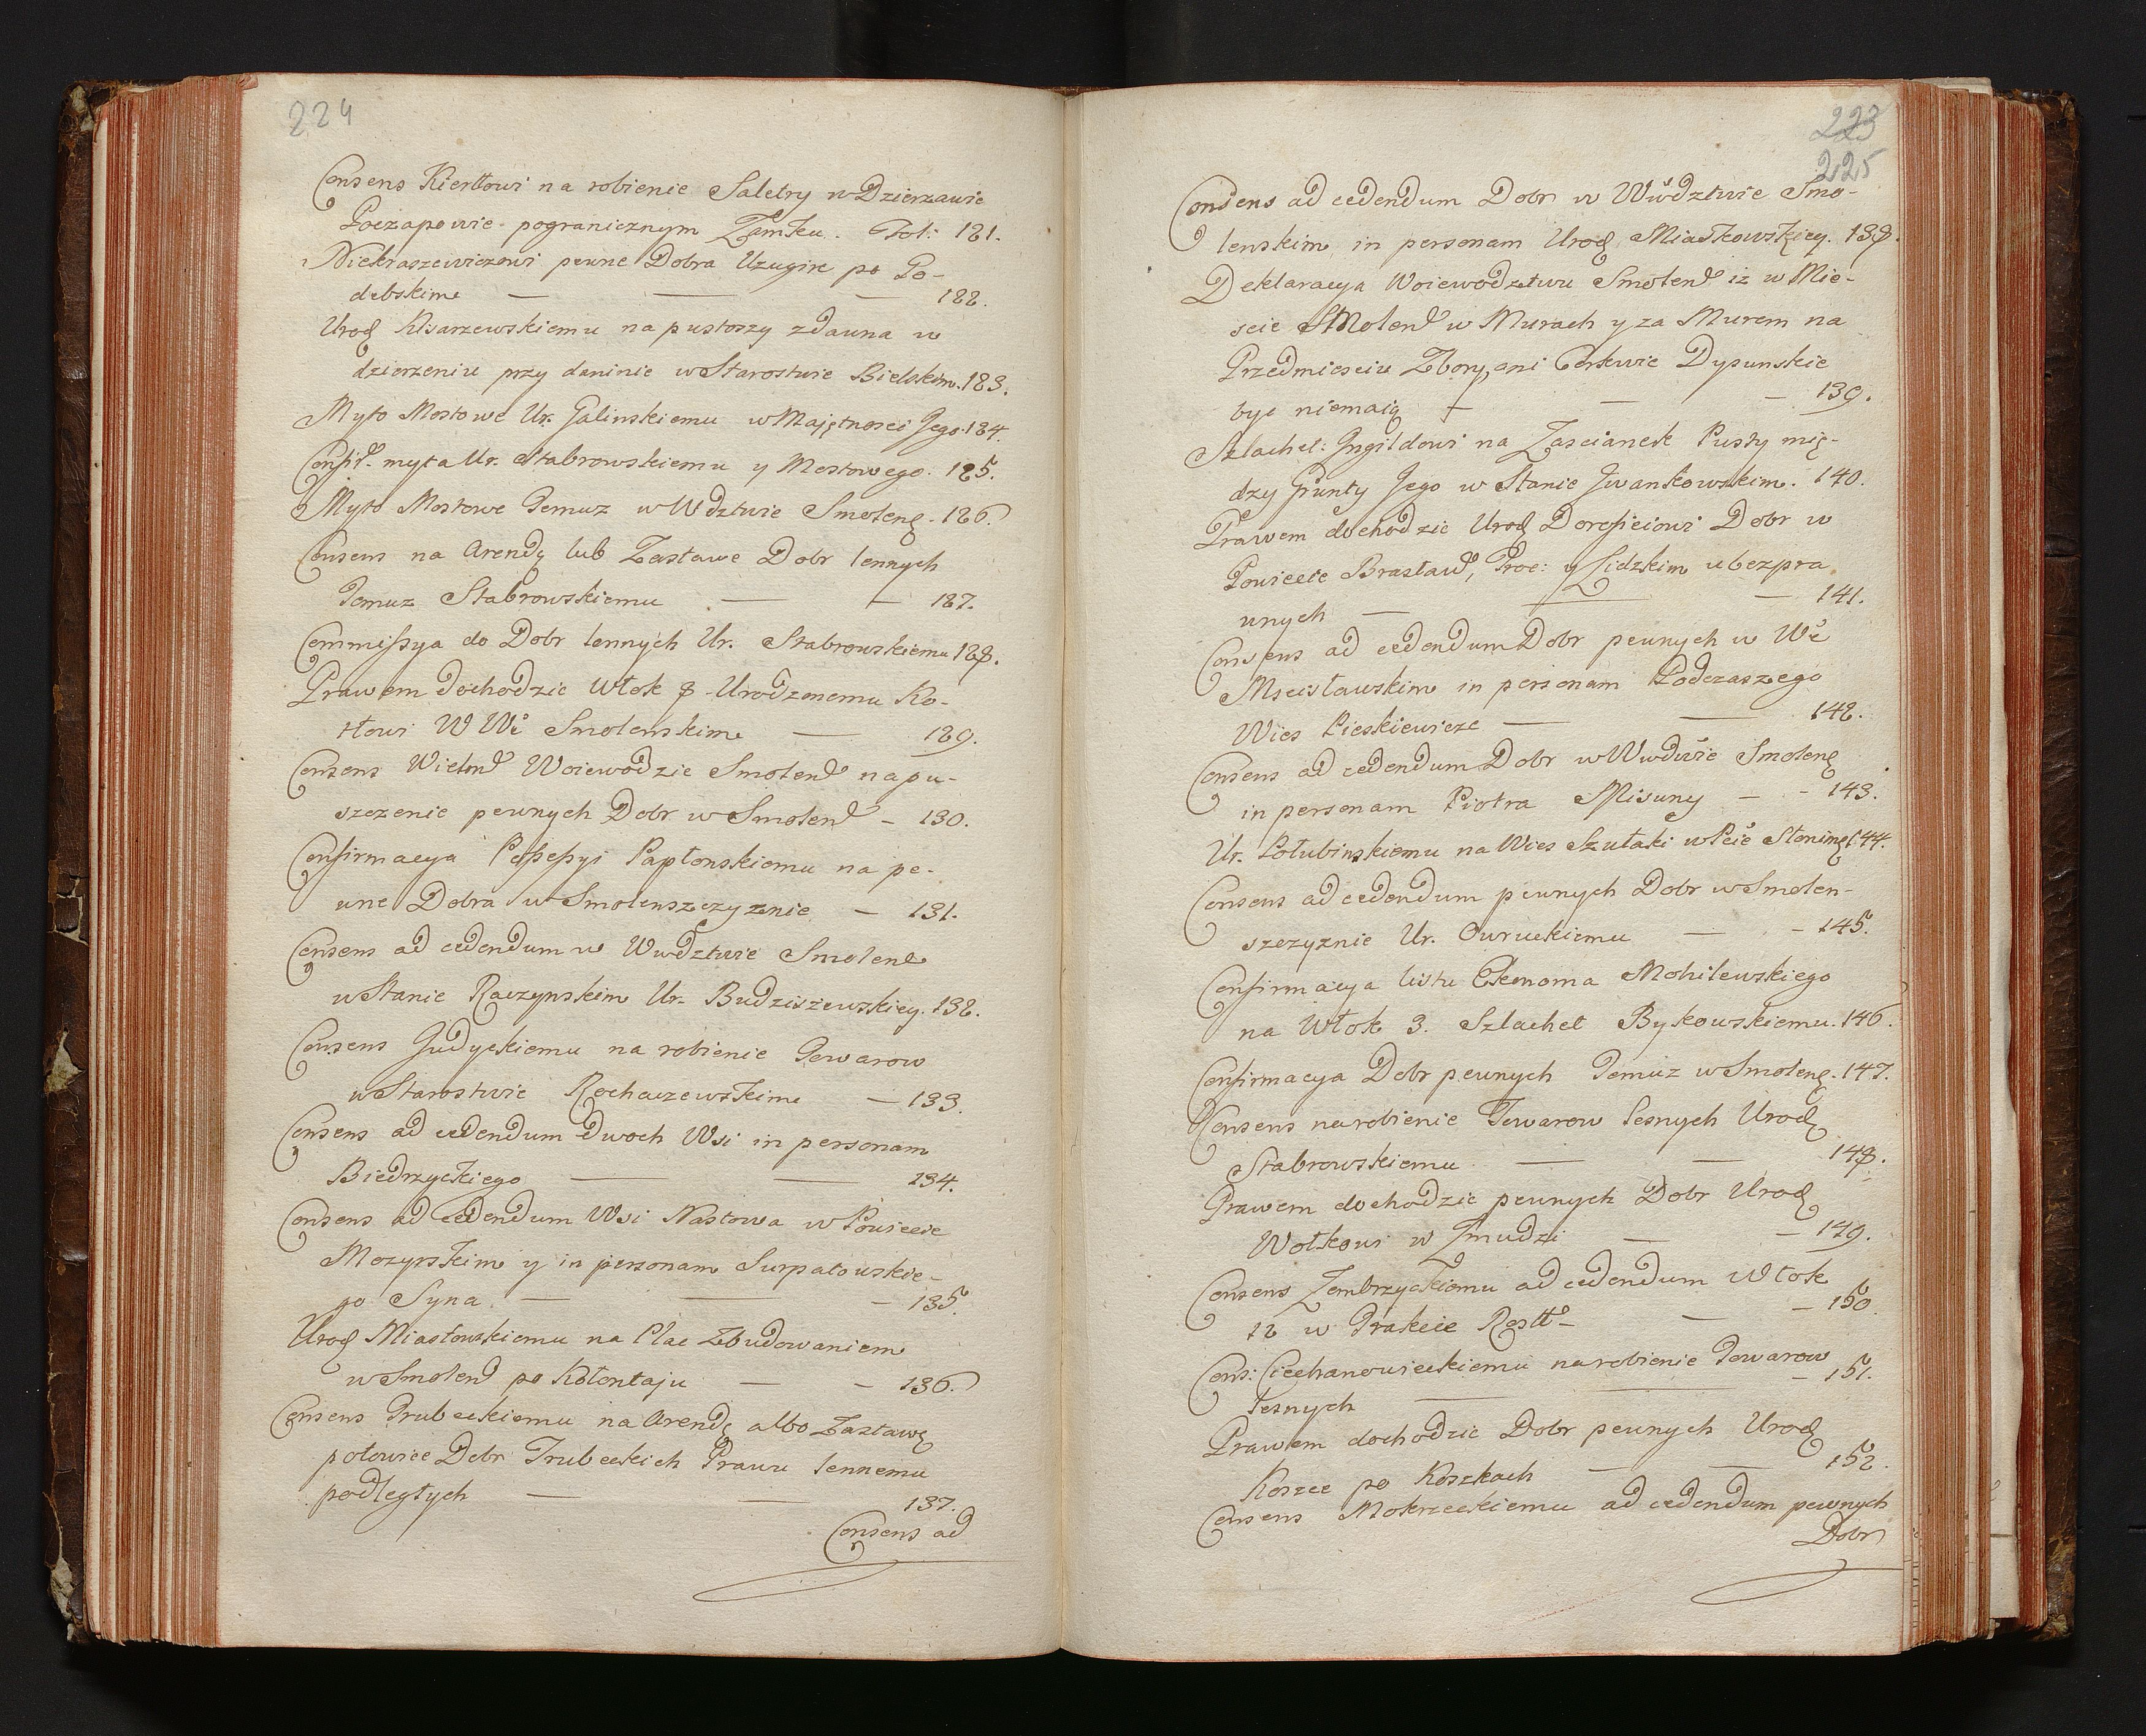 224
Consens Kierłowi na robienie Saletry w Dzierzawie
Poczapowie pogranicznym Zamku. Fol: 121.
Niekraszewiczowi pewne Dobra Uzugire po Go-
debskim — — — 122.
Urod Kisarzewskiemu na pustoszy zdauna w
dzierzeniu przy daninie w Starostwie Bielskim. 123.
Myto Mostowe Ur. Galinskiemu w Majętnosci Jego. 124.
Confir. myta Ur. Stabrowskiemu y Mostowego. 125.
Myto Mostowe Temuz w Wdztwie Smolen. 126.
Consens na Arendę lub Zastawe Dobr lennych
Temuz Stabrowskiemu — — 127.
Commissya do Dobr lennych Ur. Stabrowskiemu 128.
Prawem dochodzic Włok 8 Urodzonemu Ko-
złowi W Wє Smolenskim — 129.
Consens Wielm Woiewodzie Smolen na pu-
szczenie pewnych Dobr w Smolen — 130.
Confirmacya Possessyi Paplonskiemu na pe-
wne Dobra w Smolenszczyznie — 131.
Consens ad cedendum w Wwdztwie Smolen
w Stanie Raczynskim Ur. Budziszewskieg. 132.
Consens Judyckiemu na robienie Towarow
w Starostwie Rochaczewskim — 133.
Consens ad cedendum dwoch Wsi in personam
Biedrzyckiego — — 134.
Consens ad cedendum Wsi Nastowa w Powiecie
Mozyrskim y in personam Surpatowskie-
go Syna — — — 135.
Urod Miastowskiemu na Plac Zbudowaniem
w Smolen po Kołontaju — — 136.
Consens Trubeckiemu na Arendę albo Zastawę
połowice Dobr Trubeckich Prawu lennemu
podległych — — 137.
Consens ad
223
225
Consens ad cedendum Dobr w Wwdztwie Smo-
lenskim in personam Urod Miaskowskieg. 138.
Deklaracya Woiewodztwu Smolen iz w Mie-
scie Smolen w Murach y za Murem na
Przedmiesciu Zbory, ani Cerkwie Dyzunskie
byc niemaią — — — 139.
Szlachet: Jngildowi na Zascianek Pusty mię-
dzy Grunty Jego w Stanie Jwankowskim. 140.
Prawem dochodzic Urod Dorossieiowi Dobr w
Powiecie Brasław, Troc: y Lidzkim ubezpra
wnych — — — 141.
Consens ad cedendum Dobr pewnych w Wє
Mscisławskim in personam Podczaszego
Wies Pieskiewicze — — 142.
Consens ad cedendum Dobr w Wwdwie Smolen
in personam Piotra Misuny — - 143.
Ur. Połubinskiemu na Wies Szułaki w Pcie Słonim 144.
Consens ad cedendum pewnych Dobr w Smolen-
szczyznie Ur. Owruckiemu — - 145.
Confirmacya listu Ekonoma Mohilewskiego
na Włok 3. Szlachet Bykowskiemu. 146.
Confirmacya Dobr pewnych Temuz w Smolen. 147.
Consens na robienie Towarow lesnych Urod
Stabrowskiemu — — 148.
Prawem dochodzic pewnych Dobr Urod
Wołkowi w Zmudzi — — 149.
Consens Zembrzyckiemu ad cedendum Włok
12 w Trakcie — — 150.
Cons: Ciechanowieckiemu na robienie Towarow
lesnych — — — 151.
Prawem dochodzic Dobr pewnych Urod
Koszce po Koszkach — — 152.
Consens Mokrzeckiemu ad cedendum pewnych
Dobr